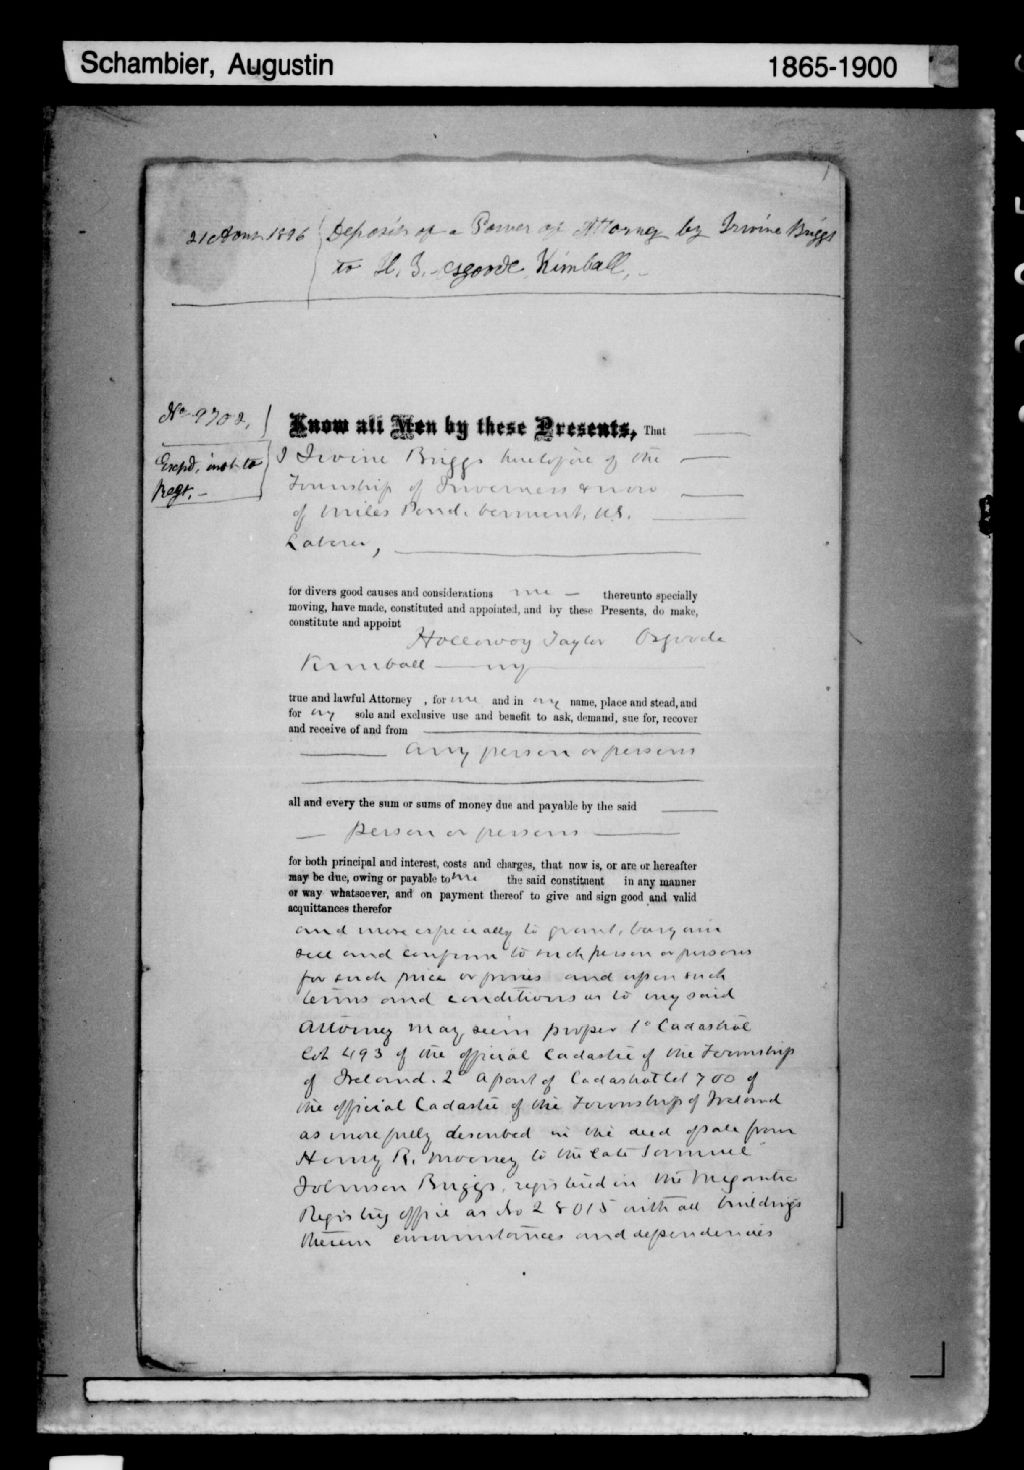 Schambier, Augustin 1865-1900
21 Aout 1896 Deposit of a Power of Attorney by Irvine Briggs
to H. T. Osgoode Kimball,
No 9702,
Know all Men by these Presents, That
I Irvine Briggs heretofore of the
Regr.
Township of Inverness & now
of Miles Pond. Vermont, U.S.
Laborer,
for divers good causes and considerations me thereunto specially
moving, have made, constituted and appointed, and by these Presents, do make,
constitute and appoint
Holloway Taylor Osgoode
Kimball my
true and lawful Attorney , for me and in my name, place and stead, and
for my sole and exclusive use and benefit to ask, demand, sue for, recover
and receive of and from
any person or persons
all and every the sum or sums of money due and payable by the said
person or persons
for both principal and interest, costs and charges, that now is, or are or hereafter
may be due, owing or payable to me the said constituent in any manner
or way whatsoever, and on payment thereof to give and sign good and valid
acquittances therefor
and more especially to grant, bargain
sell and confirm to such person or persons
for such price or prices and upon such
terms and conditions as to my said
Attorney may seem proper 1° Cadastral
lot 493 of the official Cadastre of the Township
of Ireland. 2° A part of Cadastral lot 700 of
the official Cadastre of the Township of Ireland
as more fully described in the deed of sale from
Henry R. Mooney to the late Samuel
Johnson Briggs, registered in the Megantic
Registry office as No 28015 with all buildings
therein circumstances and dependencies